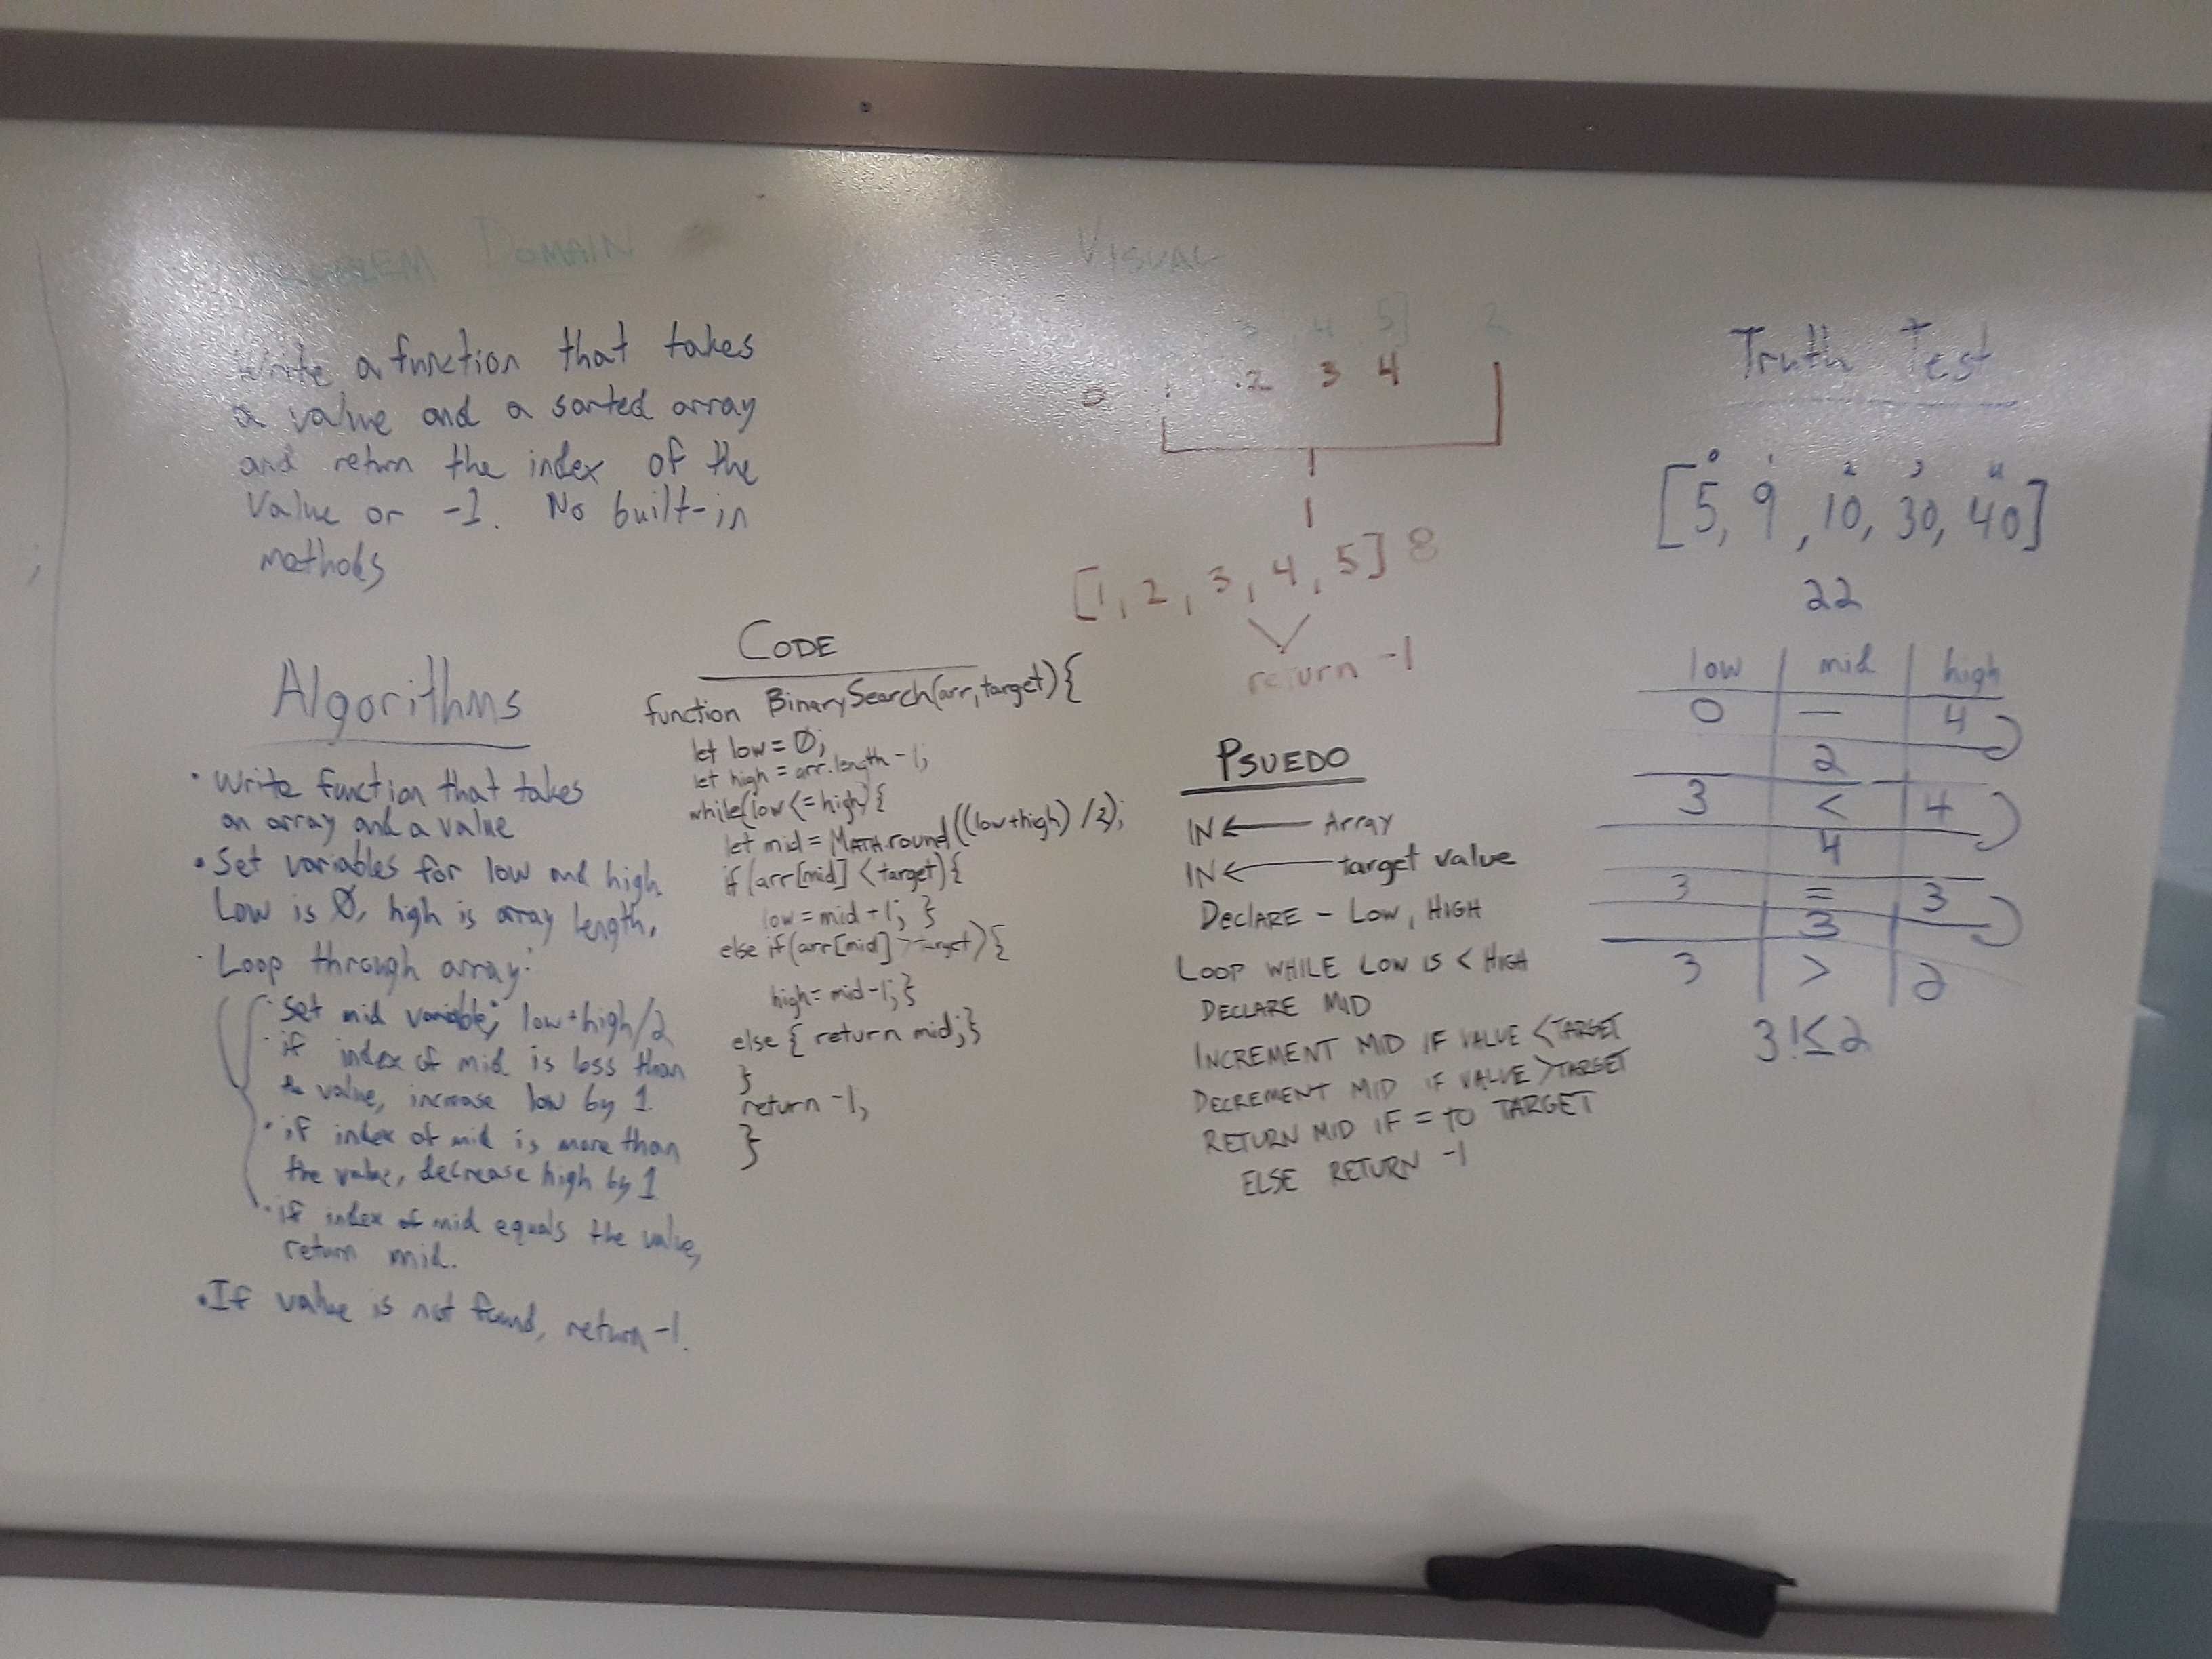 PROBLEM DOMAIN
Write a function that takes
a value and a sorted array
and return the index of the
value or -1. No built-in
methods
VISUAL
3 4 5] 2
0 1 2 3 4
1
[1, 2, 3, 4, 5] 8
return -1
Truth Test
0 1 2 3 4
[5, 9, 10, 30, 40]
22
low mid high
0 — 4
2
3 < 4
4
3 = 3
3
3 > 2
3!≤2
Algorithms
• Write function that takes
an array and a value
• Set variables for low and high.
Low is 0, high is array length.
• Loop through array:
• Set mid variable; low+high/2
• if index of mid is less than
the value, increase low by 1.
• if index of mid is more than
the value, decrease high by 1
• if index of mid equals the value,
return mid.
• If value is not found, return -1.
CODE
function BinarySearch(arr, target){
let low = 0;
let high = arr.length - 1;
while(low <= high){
let mid = MATH.round((low+high) /2);
if (arr[mid] < target){
low = mid + 1; }
else if (arr[mid] > target){
high = mid - 1; }
else { return mid; }
}
return -1;
}
PSUEDO
IN ← Array
IN ← target value
DEClARE - LOW, HIGH
LOOP WHILE LOW IS < HIGH
DECLARE MID
INCREMENT MID IF VALUE < TARGET
DECREMENT MID IF VALUE > TARGET
RETURN MID IF = TO TARGET
ELSE RETURN -1